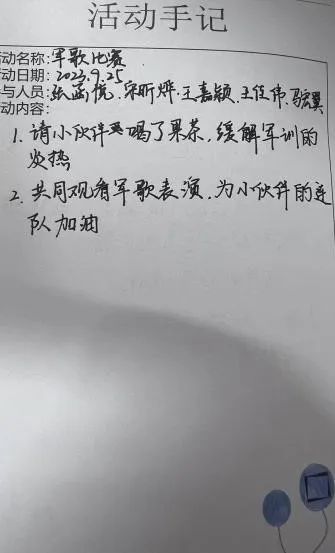 活动手记
动名称:军歌比赛
动日期:2023.9.25
与人员:张菡悦.宋昕烨.王嘉颖.王佳伟.马宏翼
动内容:
1. 请小伙伴喝了果茶,缓解军训的
炎热
2. 共同观看军歌表演,为小伙伴的连
队加油